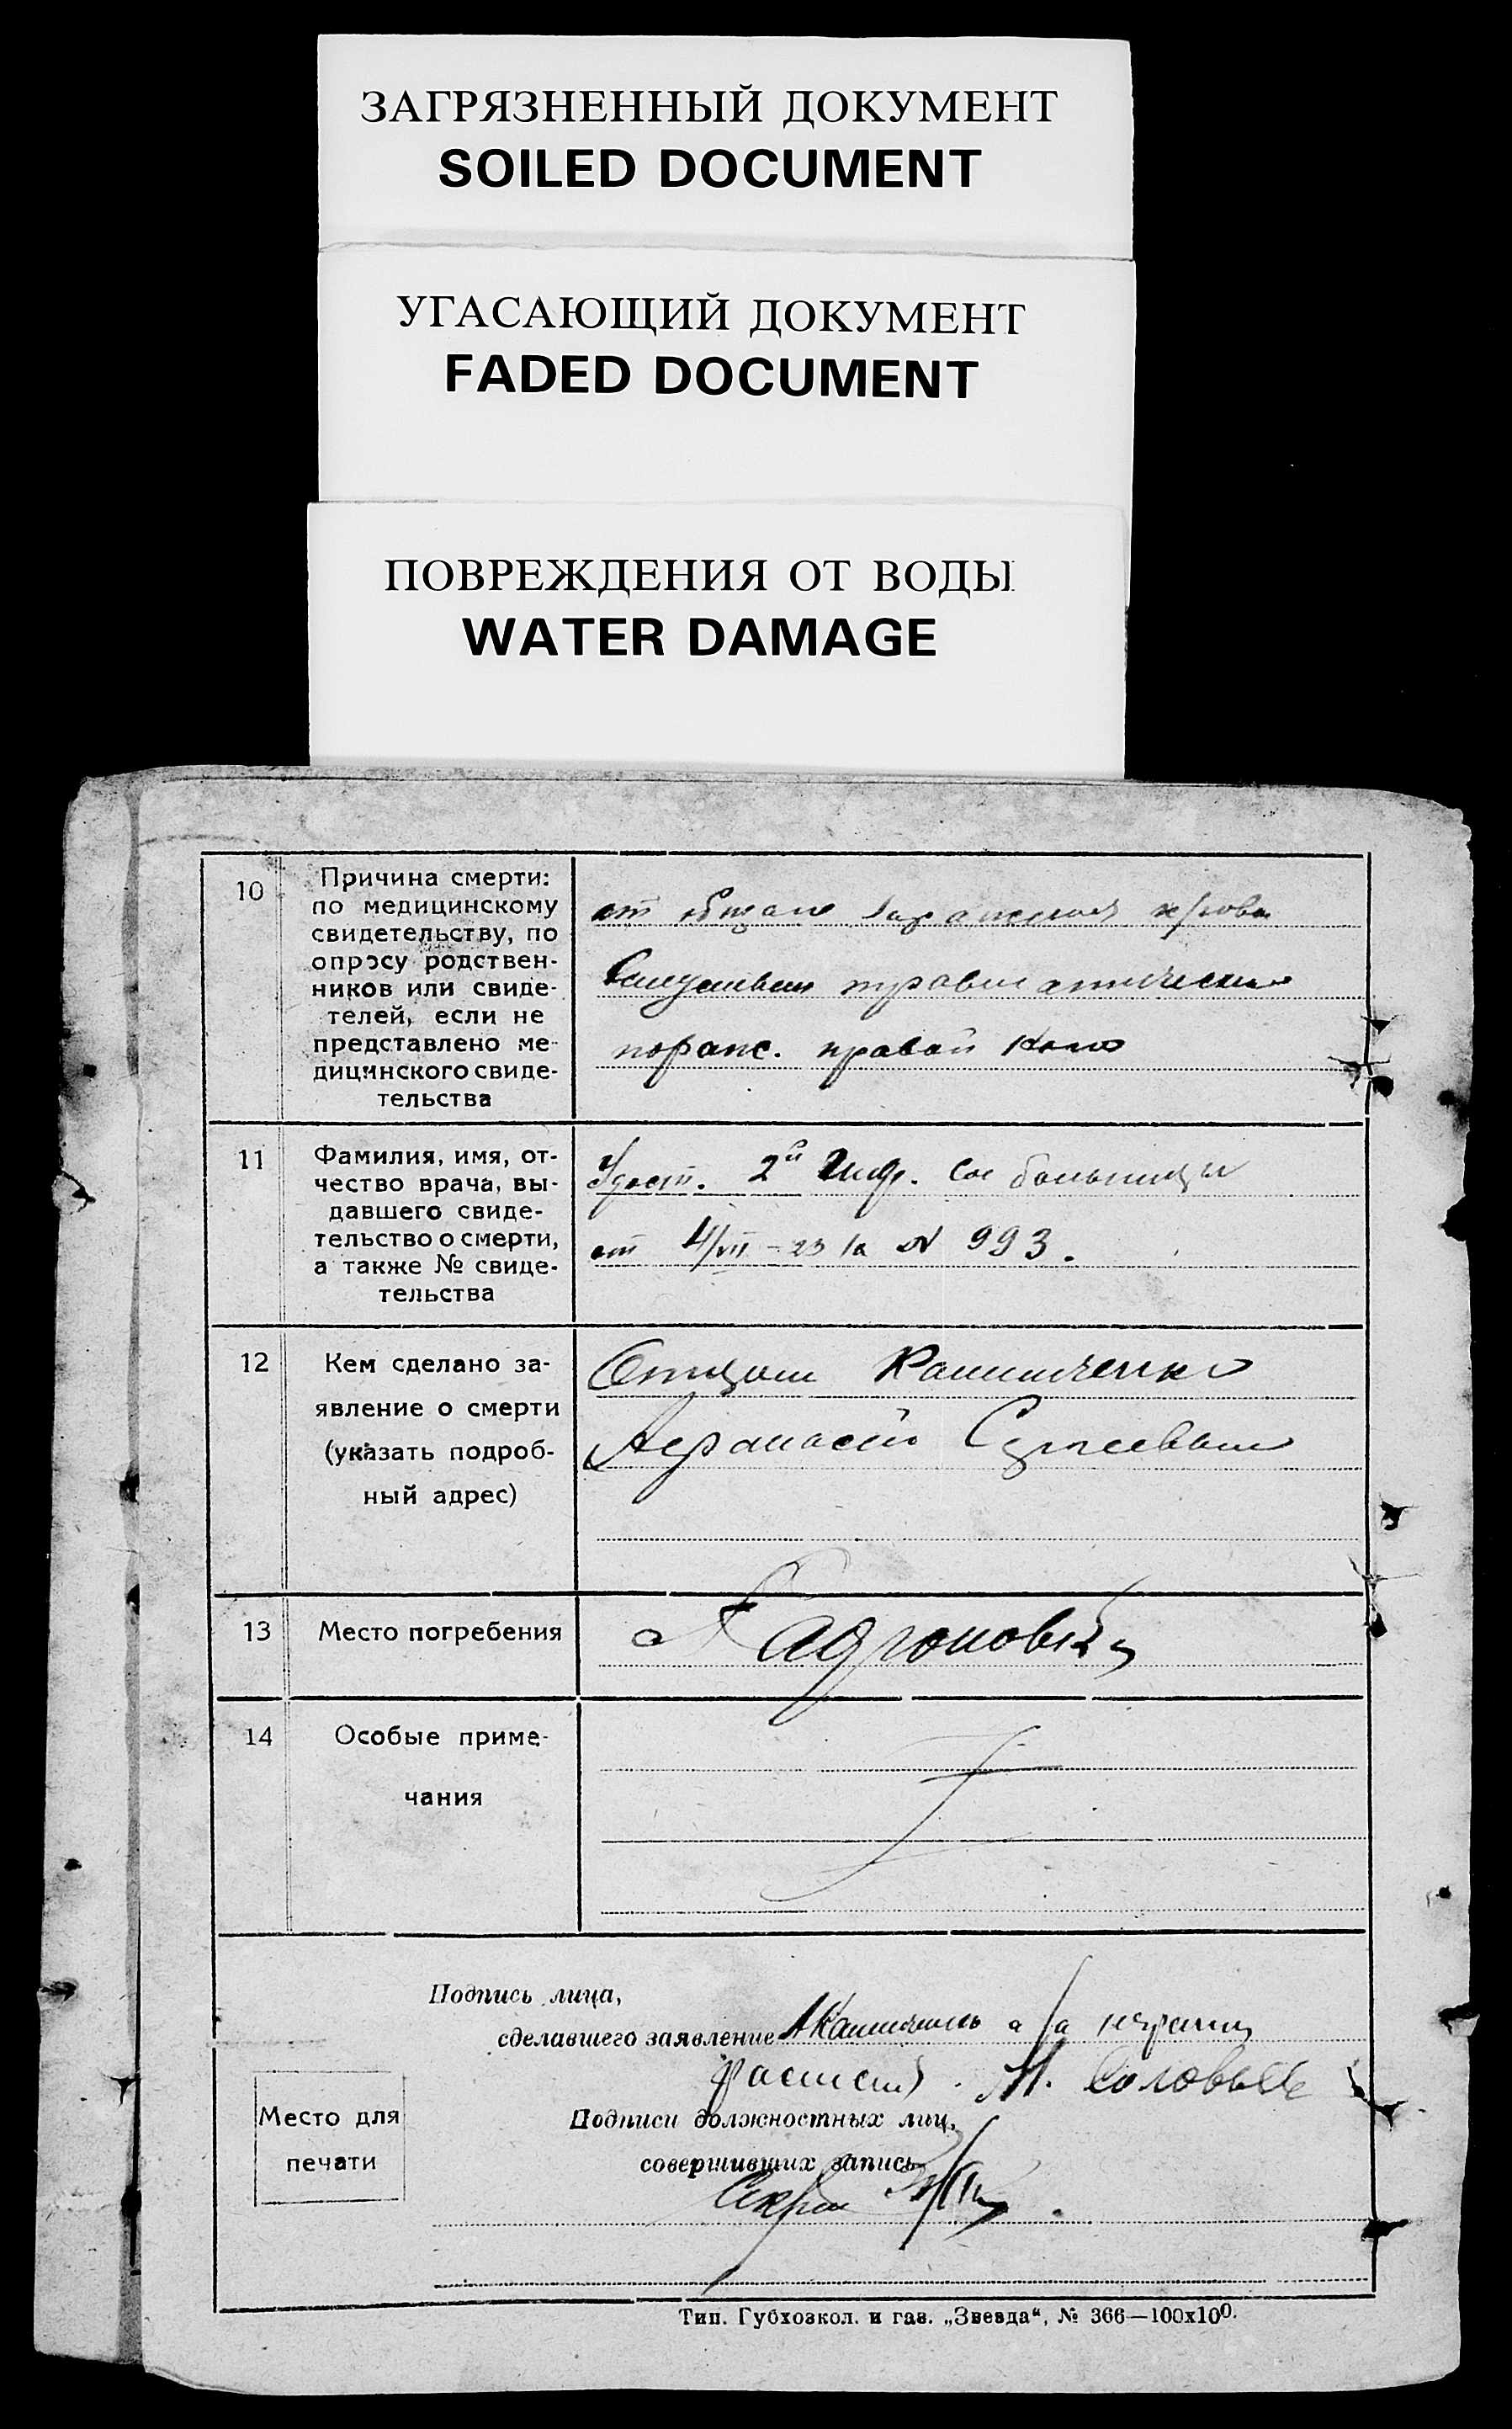 ЗАГРЯЗНЕННЫЙ ДОКУМЕНТ
SOILED DOCUMENT
УГАСАЮЩИЙ ДОКУМЕНТ
FADED DOCUMENT
ПОВРЕЖДЕНИЯ ОТ ВОДЫ
WATER DAMAGE
10
Причина смерти:
по медицинскому
свидетельству, по
опросу родствен-
ников или свиде-
телей, если не
представлено ме-
дицинского свиде-
тельства
от общаго заражения крови
травматическ
правой
11
Фамилия, имя, от-
чество врача, вы-
давшего свиде-
тельство о смерти,
а также № свиде-
тельства
Удост. 2й больницы
от 4/VII - 23 за № 993.
12
Кем сделано за-
явление о смерти
(указать подроб-
ный адрес)
Отцом
Афанасий Сергеевым
13
Место погребения
14
Особые приме-
чания
Подпись лица,
сделавшего заявление а за неграм
расписал. М. Соловьев
Место для
печати
Подписи должностных лиц,
совершивших запись
Тип. Губхозкол. и газ. „Звезда“, № 366—100х100.